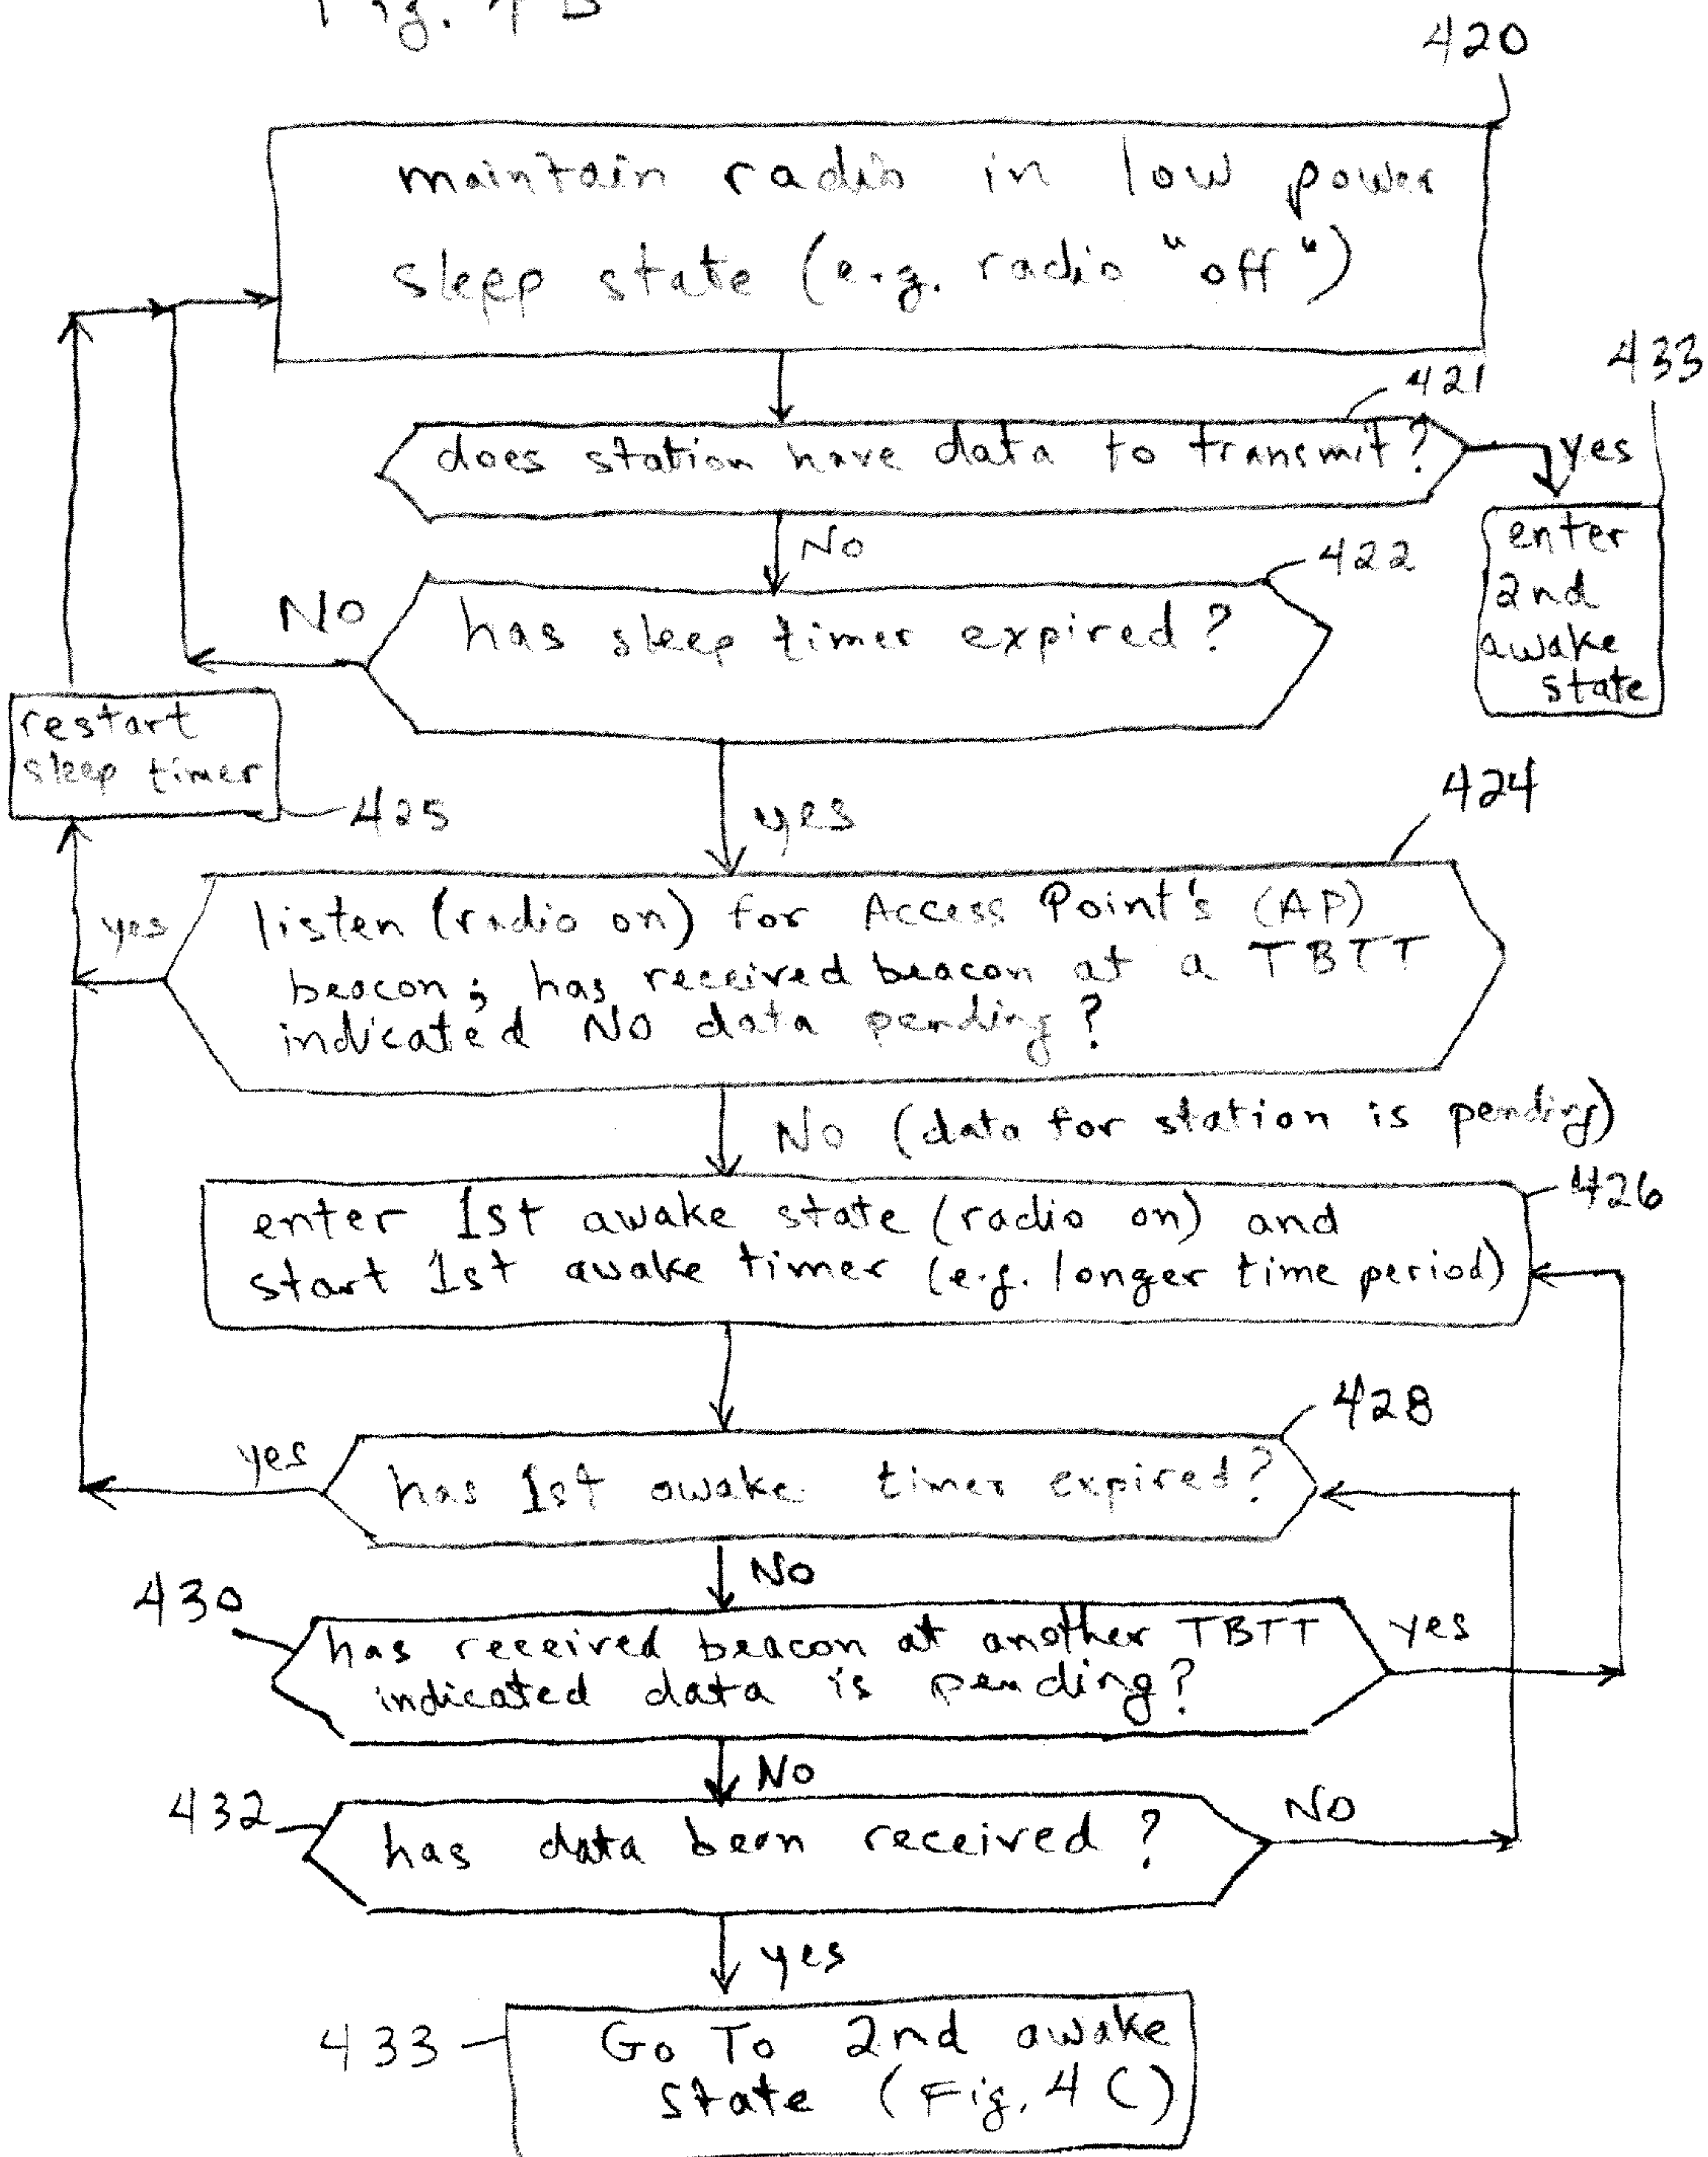 Fig. 4B
420
maintain radio in low power
sleep state (e.g. radio "off")
433
421
does station have data to transmit?
yes
enter
2nd
awake
state
No
422
No
has sleep timer expired?
restart
sleep timer
425
yes
424
yes
listen (radio on) for Access Point's (AP)
beacon; has received beacon at a TBTT
indicated No data pending?
No (data for station is pending)
426
enter 1st awake state (radio on) and
start 1st awake timer (e.g. longer time period)
428
yes
has 1st awake timer expired?
No
430
has received beacon at another TBTT
indicated data is pending?
yes
No
432
has data been received?
No
yes
433
Go To 2nd awake
state (Fig. 4C)